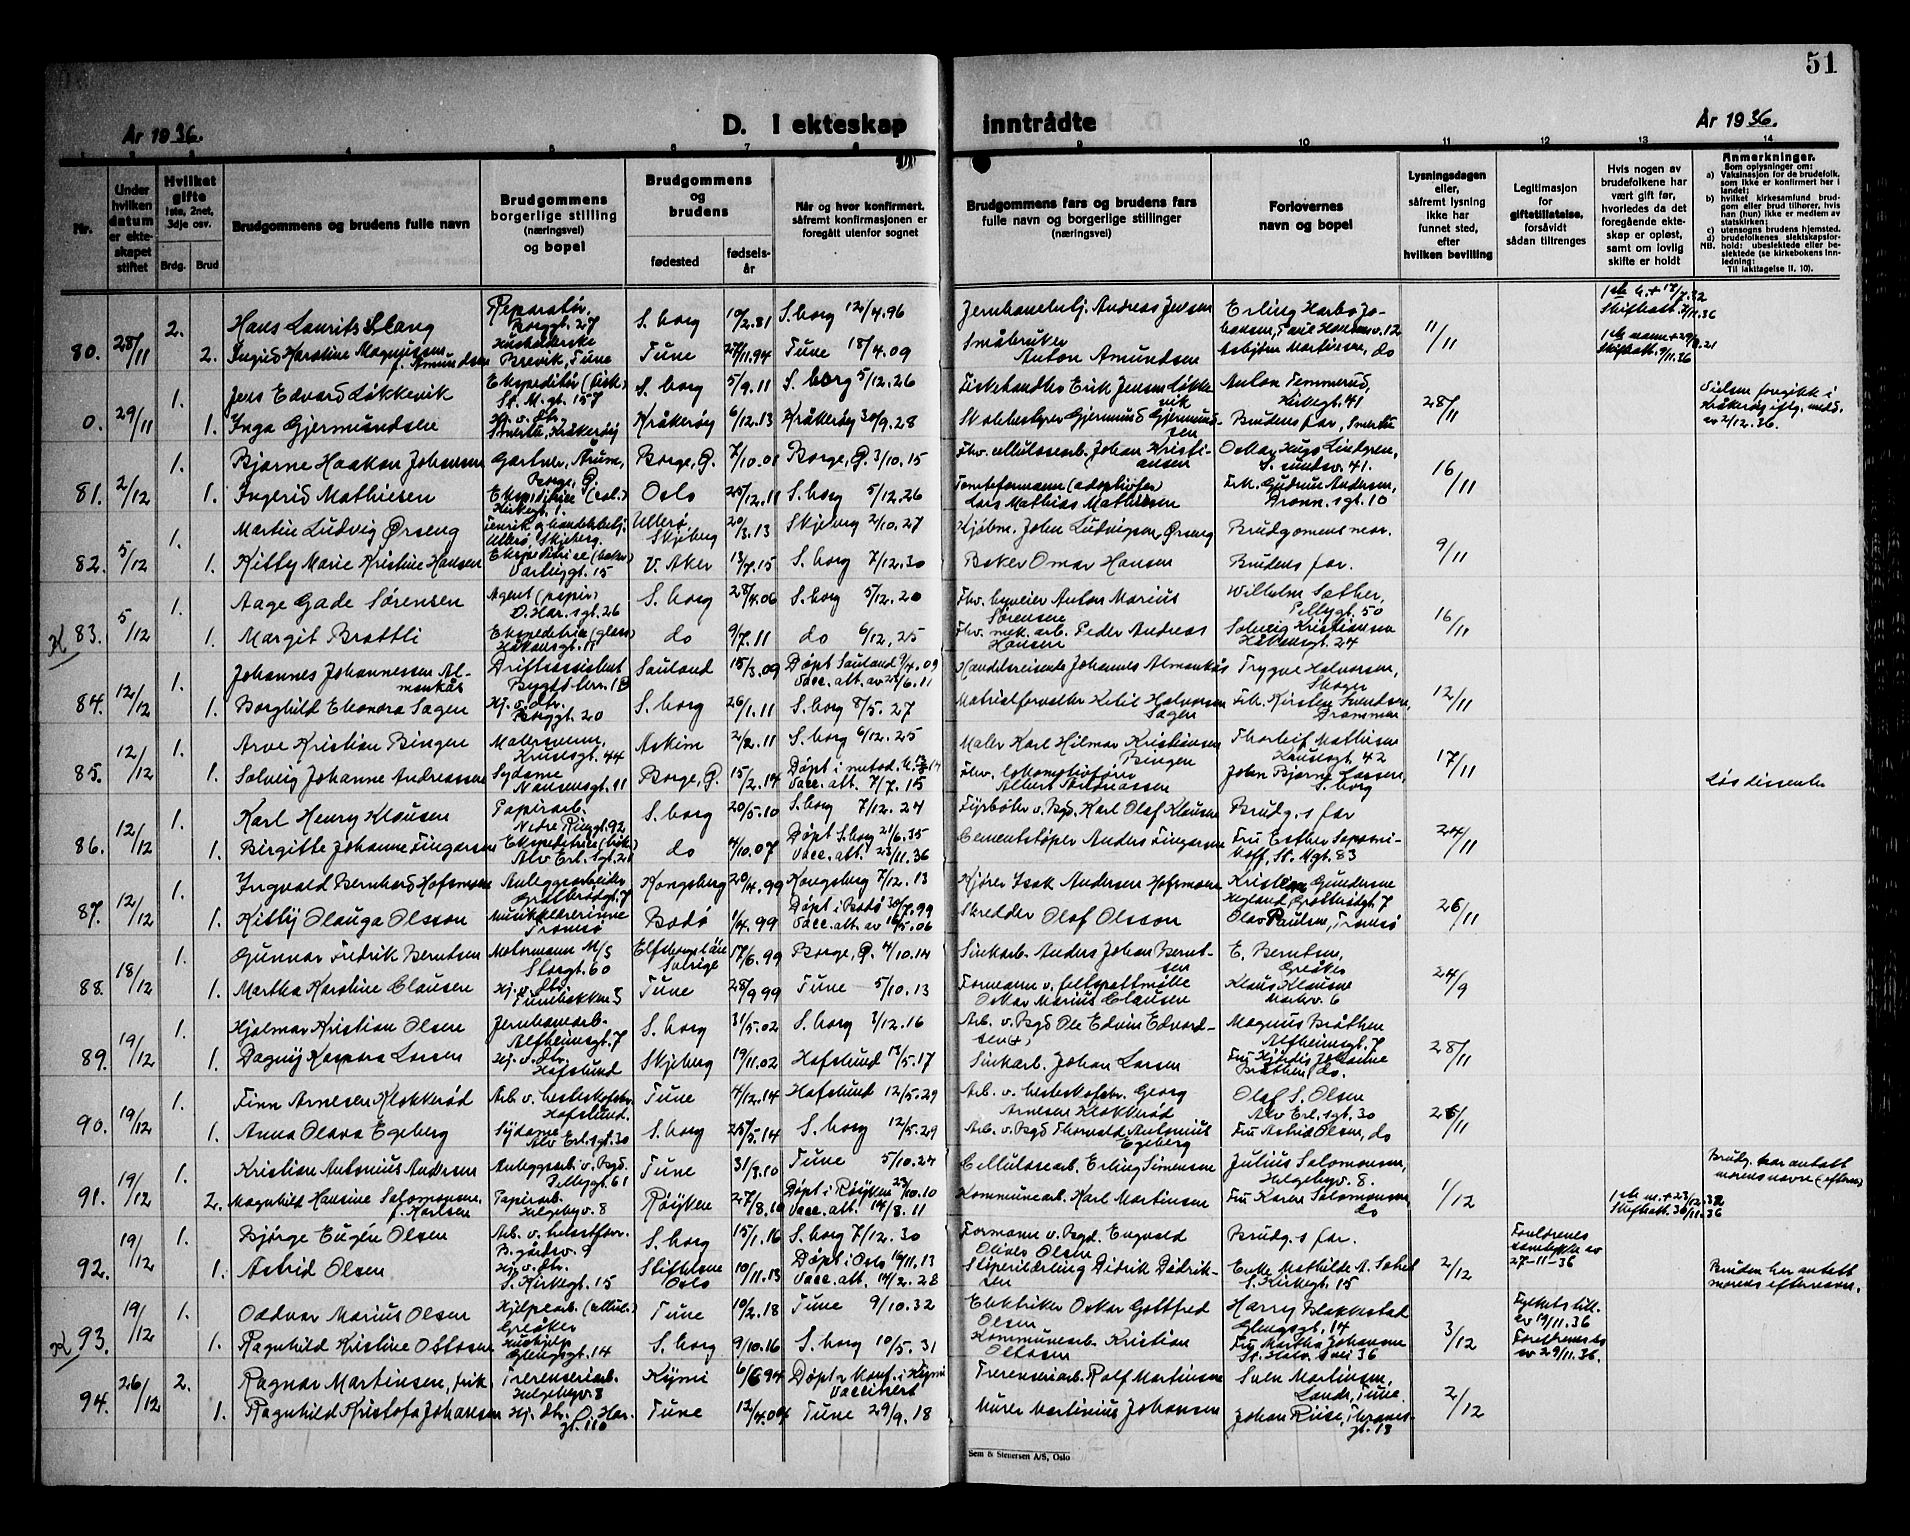 51
År 1936.
D. I ekteskap inntrådte
År 1936.
1 2 3 4 5 6 7 8 9 10 11 12 13 14
Nr.
Under hvilken datum er ekteskapet stiftet
Hvilket gifte
1ste, 2net, 3dje osv.
Brdg. Brud
Brudgommens og brudens fulle navn
Brudgommens borgerlige stilling (næringsvei) og bopel
Brudgommens og brudens
fødested
fødselsår
Når og hvor konfirmert, såfremt konfirmasjonen er foregått utenfor sognet
Brudgommens fars og brudens fars fulle navn og borgerlige stillinger (næringsvei)
Forlovernes navn og bopel
Lysningsdagen eller, såfremt lysning ikke har funnet sted, efter hvilken bevilling
Legitimasjon for giftetillatelse, forsåvidt sådan tiltrenges
Hvis nogen av brudefolkene har vært gift før, hvorledes da det foregående ekteskap er opløst, samt om lovlig skifte er holdt
Anmerkninger.
Som oplysninger om:
a) Vaksinasjon for de brudefolk, som ikke er konfirmert her i landet;
b) hvilket kirkesamfund brudgom eller brud tilhører, hvis han (hun) ikke er medlem av statskirken;
c) utensogns brudens hjemsted.
d) brudefolkenes slektskapsforhold:
NB. ubeslektede eller beslektede (se kirkebokens innledning:
Til iakttagelse II, 10).
80. 28/11 2. Hans Laurits Slang Reparatør, Borggt. 27 S. borg 10/2.81 S. borg 12/4.96 Jernhandelbetj. Andreas Jensen Erling Harbo Johansen, 11/11 Skiftatt. 3/11.36
2. Ingrid Karoline Magnussen f. Amundsen Husholderske Brevik, Tune Tune 27/11.94 Tune 18/4.09 Småbruker Anton Amundsen Asbjørn Martinsen, do Skiftatt. 9/11.36
0. 29/11 1. Jens Edvard Løkkevik Ekspeditør (fisk) St. M.gt. 157 S. borg 5/9.11 S. borg 5/12.26 Fiskehandler Erik Jensen Løkkevik Anton Temmerud, Kirkegt. 41 28/11 Vielsen foregikk i Kråkerøy iflg. medd. av 2/12.36.
1. Inga Gjermundsen Hj. v. Str. Smertu, Kråkerøy Kråkerøy 6/12.13 Kråkerøy 30/9.28 Skolebestyrer Gjermund Gjermundsen Brudens far, Smertu
81. 2/12 1. Bjarne Haakon Johansen Gartner, Årum, Borge, Ø. Borge, Ø. 7/10.01 Borge, Ø. 3/10.15 Fhv. cellulosearb. Johan Kristiansen Oskar Hugo Lindgren, S. sundsv. 41. 16/11
1. Ingerid Mathiesen Ekspeditrise (col.) Kirkegt. 1. Oslo 25/12.11 S. borg 5/12.26 Tomteformann (adoptivfar) Lars Mathias Mathiesen Frk. Gudrun Andersen, Dronn.sgt. 10
82. 5/12 1. Martin Ludvig Ørseng Ullerø, Skjeberg Ullerø, Skjeberg 20/3.13 Skjeberg 2/10.27 Kjøbm. John Ludvigsen Ørseng Brudgomens mor. 9/11
1. Kitty Marie Kristine Hansen Ekspeditrise (baker) Varteiggt. 15 V. Aker 13/7.15 S. borg 7/12.30 Baker Omar Hansen Brudens far.
83. 5/12 1. Aage Gade Sørensen Agent (papir) O. Har.sgt. 26 S. borg 28/4.06 S. borg 5/12.20 Fhv. byveier Anton Marius Sørensen Wilhelm Sæther, Pellygt. 50 16/11
1. Margit Brattli Ekspeditrise (glass) Håkonsgt. 11 do 9/7.11 do 6/12.25 Fhv. mek. arb. Peder Andreas Hansen Solveig Kristiansen Håkonsgt. 24
84. 12/12 1. Johannes Johannessen Almankås Driftsassistent Sauland 15/3.09 Døpt Sauland 9/4.09 Vacc. att. av 28/6.11 Handelsreisende Johannes Almankås Trygve Halvorsen, Skoger 12/11
1. Borghild Eleonora Sagen Hj. v. Str. Borggt. 20 S. borg 26/1.11 S. borg 8/5.27 Materialforvalter Ketil Halvorsen Sagen Frk. Kirsten Svendsen, Drammen
85. 12/12 1. Arve Kristian Bingen Malersvenn, Krusesgt. 44 Askim 2/2.11 S. borg 6/12.25 Maler Karl Hilmar Kristiansen Bingen Thorleif Mathisen Krusesgt. 42 17/11
1. Solveig Johanne Andreassen Sydame Nansensgt. 11 Borge, Ø. 15/2.14 Døpt i metod. k. Vacc. att. 7/7.15 Fhv. lokomotivfører Albert Andreassen John Bjarne Larsen, S. borg Løs dissenter
86. 12/12 1. Karl Henry Klausen Papirarb. Nedre Ringgt. 92 S. borg 20/5.10 S. borg 7/12.24 Fyrbøter v. Bgd. Karl Olaf Klausen Brudg.s far 24/11
1. Birgitte Johanne Fingarsen Ekspeditrise (bok) Alv Erl.sgt. 21 do 4/10.07 Døpt S. borg 21/6.35 Vacc. att. 23/11.36 Cementstøper Anders Fingarsen Fru Esther St. Mgt. 83
87. 12/12 1. Ingvald Bernhard Hofsmoen Anleggsarbeider Grottrødgt. 7 Kongsberg 20/4.99 Kongsberg 7/12.13 Kjører Isak Andersen Hofsmoen Kristian Gundersen Grottrødgt. 7 26/11
1. Kitty Olauga Olsson Musikklærerinne Tromsø Bodø 1/4.99 Døpt i Bodø 30/7.99 Vacc. att. av 16/5.06 Skredder Olaf Olsson Olav Paulsen, Tromsø
88. 18/12 1. Gunnar Fredrik Berntsen Motormann M/S Storgt. 60 Sverige 17/6.99 Borge, Ø. 4/10.14 Sinkarb. Anders Johan Berntsen E. Berntsen, Greåker 24/9
1. Martha Karoline Clausen Hj. v. Str. Tunebakken 3 Tune 28/9 99 Tune 5/10.13 Formann v. feltspattmølle Oskar Marius Clausen Klaus Klausen Markv. 6
89. 19/12 1. Hjalmar Kristian Olsen Jernhanarb. Alfheimsgt. 7 S. borg 31/5.02 S. borg 3/12.16 Arb. v. Bgd Ole Edvin Edvardsen(+) Magnus Bråthen Alfheimsgt. 7 28/11
1. Dagny Kaspara Larsen Hj. v. Str. Hafslund Skjeberg 19/11.02 Hafslund 13/5.17 Sinkarb. Johan Larsen Fru Hjørdis Johanne Bråthen, do.
90. 19/12 1. Finn Arnesen Klokkerød Arb. v. hesteskofabr. Hafslund. Tune 4/12.14 Hafslund 12/5.29 Arb. v. hesteskofabr. Georg Arnesen Klokkerød Olaf S. Olsen Alv Erl.sgt. 30 26/11
1. Anna Olava Egeberg Sydame Alv Erl.sgt. 30 S. borg 25/5.14 S. borg 12/5.29 Arb. v. Bgd Thorvald Antonius Egeberg Fru Astrid Olsen, do
91. 19/12 1. Kristian Antonius Andersen Anleggsarb. v. Bgd. Pellygt. 61 Tune 31/3.10 Tune 5/10.24 Cellulosearb. Erling Simensen Julius Salomonsen, Helgebyv. 8. 1/12 Brudg. har antatt morens navn (eftern)
2. Magnhild Hansine Salomonsen f. Karlsen Papirarb. Helgebyv. 8 Røyken 27/8.10 Døpt i Røyken 23/10.10 Vacc. att. 14/8.11 Kommunearb. Karl Martinsen Fru Karen Salomonsen do 1ste m. + 23/12.32 Skiftatt. 30/11.36
92. 19/12 1. Bjørge Eugén Olsen B. gårdsv. 9 S. borg 15/1.16 S. borg 7/12.30 Formann v. Bgd. Engvald Olines Olsen Brudg.s far. 2/12 Foreldrenes samtykke av 27-11-36
1. Astrid Olsen Hj. v. Str. S. Kirkegt. 15 Stiftelsen Oslo 10/11.13 Døpt i Oslo 16/11.13 Vacc. att. 14/2.28 Sliperilærling Didrik Didriksen Enke Mathilde A. S. Kirkegt. 15 Bruden har antatt morens efternavn.
93. 19/12 1. Oddvar Marius Olsen Hjelpearb. (cellul.) Greåker Tune 10/2.18 Tune 9/10.32 Elektriker Oskar Gottfred Olsen Harry Blakkestad Glengsgt. 14 3/12 Fylkets till. av 19/11.36
1. Ragnhild Kristine Ottosen Hushjelp Glengsgt. 14 S. borg 9/10.16 S. borg 10/5.31 Kommunearb. Kristian Ottosen Fru Martha Johansen St. Halv.s vei 36 av 29/11.36.
94. 26/12 2. Ragnar Martinsen, frik. Trerenseriarb. Helgebyv. 8 Kymi 6/6 94 Døpt & konf. i Kymi Vaccinert Trerenseriarb. Rolf Martinsen Sven Martinsen, Lande, Tune 2/12
1. Ragnhild Kristofa Johansen Hj. Str. O. Har. gt. 110 Tune 12/4.04 Tune 29/9.18 Murer Martinius Johansen Johan Riise, gt. 13
Sem & Stenersen A/S, Oslo